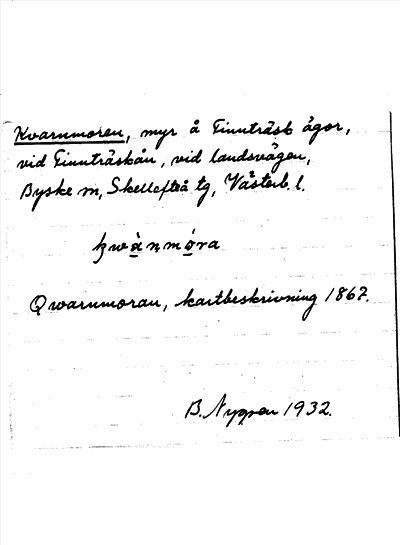 Kvarnmoren, myr å Finnträsk ägor,
vid Finnträskån, vid landsvägen,
Byske sn, Skellefteå tg, Västerb. l.
kwànmóra
Qwarnmoran, kartbeskrivning 1867.
B. Nygren 1932.